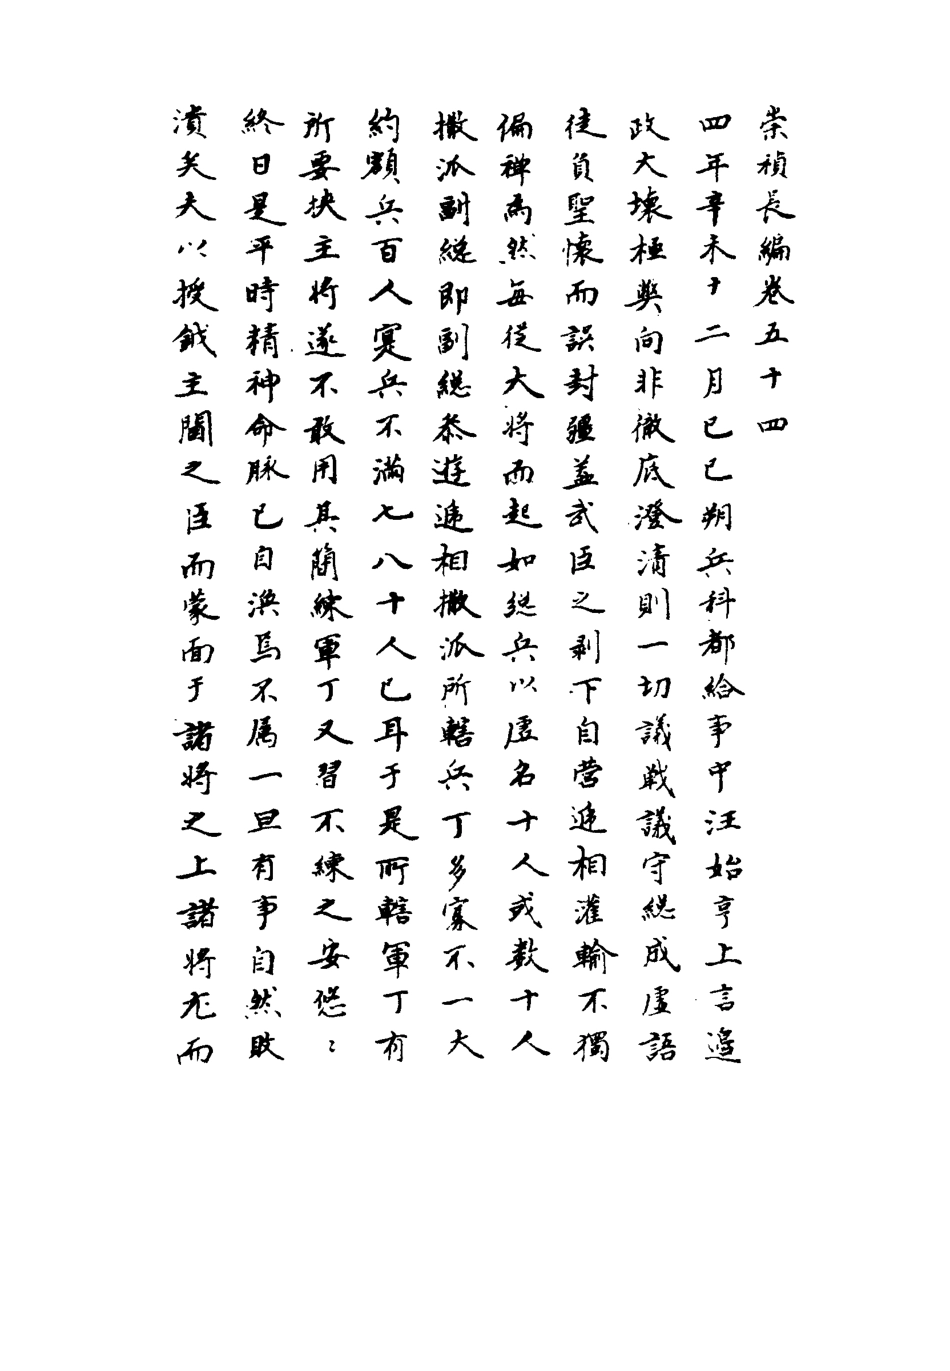 崇禎長編卷五十四
四年辛未十二月己巳朔兵科都給事中汪始亨上言邊
政大壞極獘向非徹底澄清則一切議戰議守總成虛語
徒負聖懷而誤封疆葢武臣之剥下自營遞相灌輸不獨
偏裨為然每從大將而起如總兵以虛名十人或数十人
撒派副總即副總叅遊遞相撒派所轄兵丁多寡不一大
約額兵百人寔兵不滿七八十人已耳于是所轄軍丁有
所要挾主將遂不敢用其簡練軍丁又習不練之安悠〻
終日是平時精神命脉已自渙焉不属一旦有事自然敗
潰矣夫以授鉞主閫之臣而蒙面于諸將之上諸將尤而